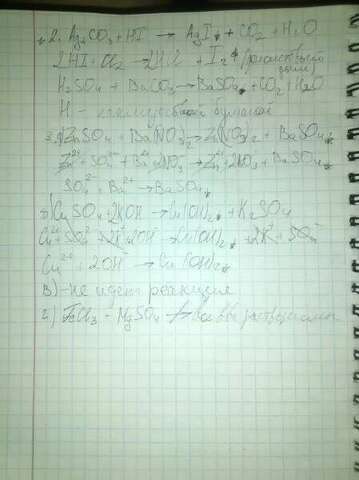 2. Ag2CO3 + HI → AgI↓ + CO2 + H2O
2HI + Cl2 → 2HCl + I2↓
H2SO4 + BaCO3 → BaSO4↓ + CO2 + H2O
H - лакмусовой бумагой
ZnSO4 + Ba(NO3)2 → Zn(NO3)2 + BaSO4↓
Zn2+ + SO42- + Ba2+ + 2NO3- → Zn2+ + 2NO3- + BaSO4↓
SO42- + Ba2+ → BaSO4↓
б) CuSO4 + 2KOH → Cu(OH)2↓ + K2SO4
Cu2+ + SO42- + 2K+ + 2OH- → Cu(OH)2↓ + 2K+ + SO42-
Cu2+ + 2OH- → Cu(OH)2↓
в) - не идет реакция
г) FeCl3 - MgSO4 оба растворимы